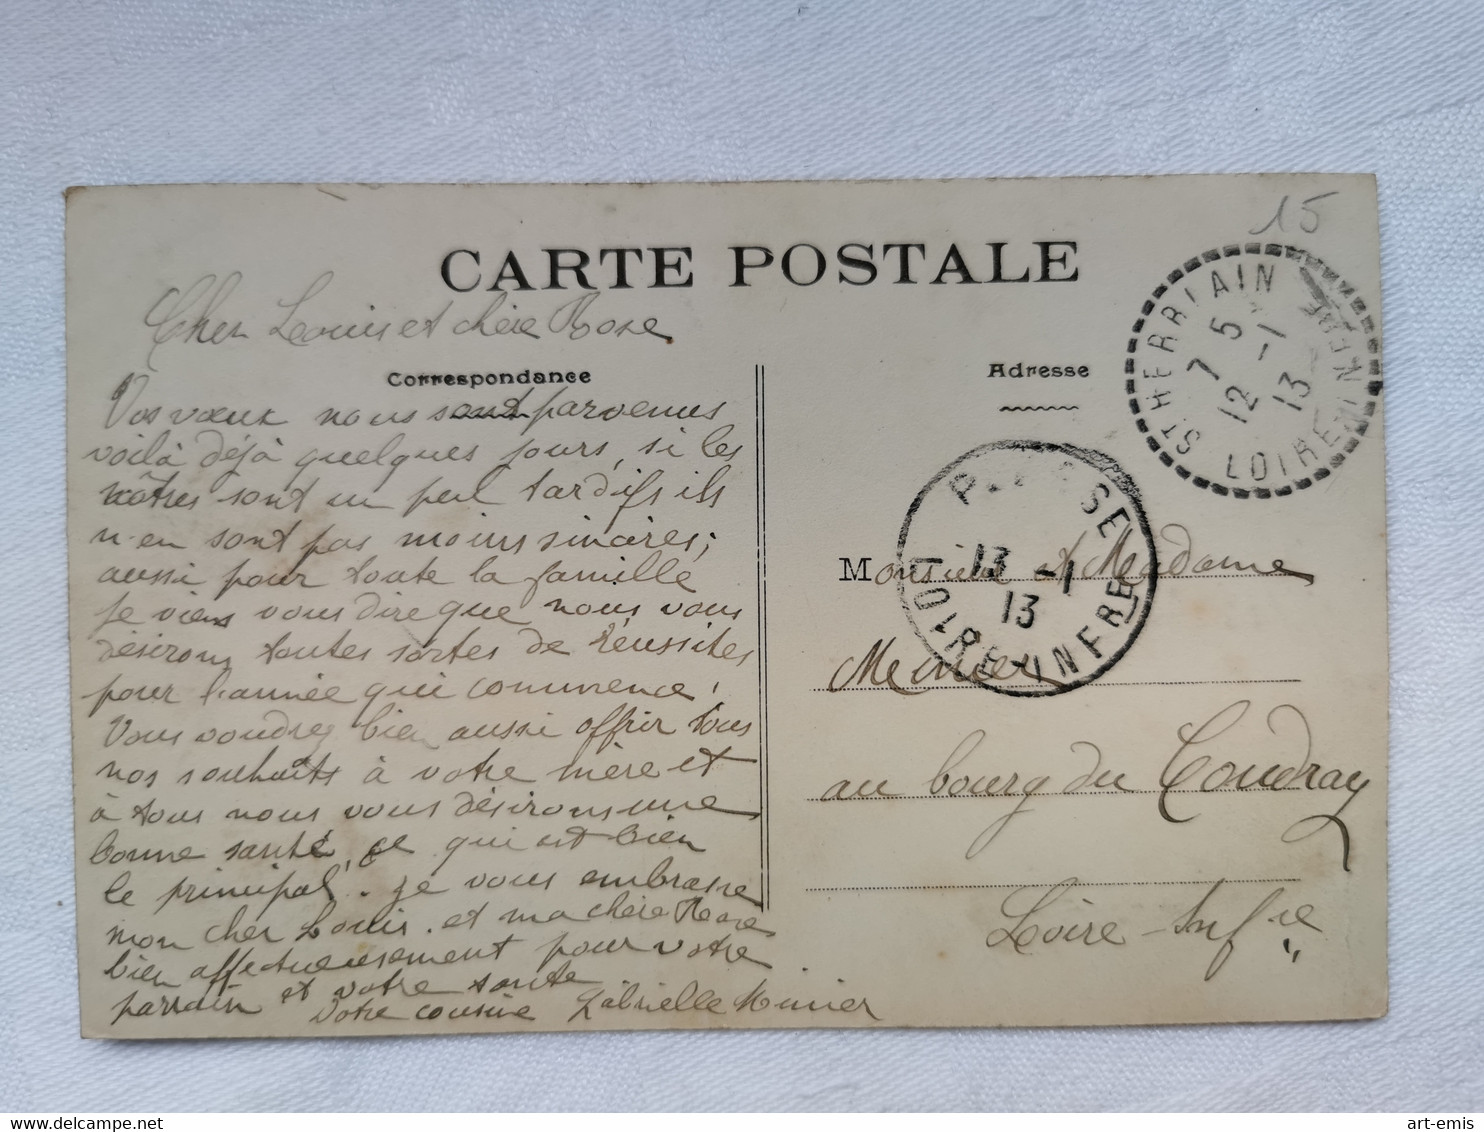 15
CARTE POSTALE
Cher Louis et chère Rose
Correspondance
Vos vœux nous sont parvenus
voilà déjà quelques jours, si les
nôtres sont un peu tardifs ils
n'en sont pas moins sincères;
aussi pour toute la famille
je viens vous dire que nous vous
désirons toutes sortes de réussites
pour l'année qui commence.
Vous voudrez bien aussi offrir tous
nos souhaits à votre mère et
à tous nous vous désirons une
bonne santé, ce qui est bien
le principal. Je vous embrasse
mon cher Louis et ma chère Rose
bien affectueusement pour votre
parrain et votre tante
Votre cousine Gabrielle Minier
Adresse
Monsieur et Madame
Menier
au bourg du Coudray
Loire-Infre
ST HERBLAIN
7 5
12 -1
13
LOIRE INFRE
SSE
13 -1
13
LOIRE-INFRE
art-emis